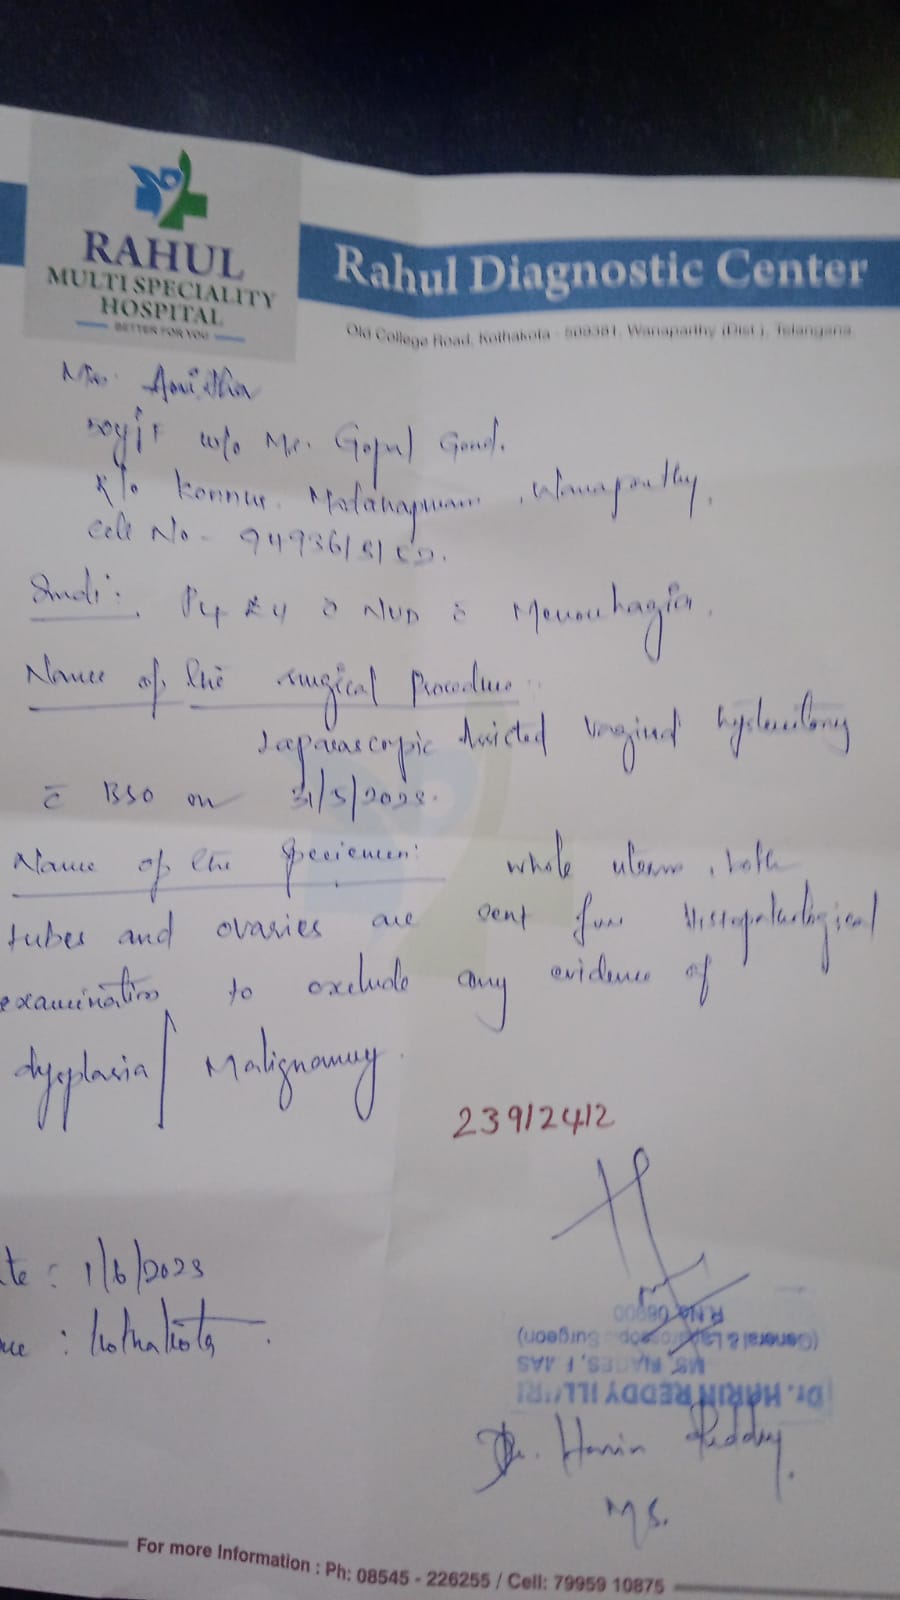 RAHUL
MULTI SPECIALITY
HOSPITAL
BETTER FOR YOU
Rahul Diagnostic Center
Old College Road, Kothakota - 509381, Wanaparthy (Dist.), Telangana.
Mrs. Anitha
50y/F w/o Mr. Gopal Goud.
R/o Konnur, Madanapuram, Wanaparthy,
Cell No -
Indi: P4 L4 c̄ NVD c̄ Menorrhagia.
Name of the surgical Procedure:
Laparascorpic Assisted Vaginal hysterectomy
c̄ BSO on 31/5/2023.
Name of the Speciemen: whole uterus, both
tubes and ovaries are sent for Histopathological
examination to exclude any evidence of
dysplasia/ Malignancy.
239/2412
te: 1/6/2023
ce: Kothakota.
R.No
(General & Surgeon)
MS,
Dr. HARIN REDDY
Dr. Harin Reddy.
MS.
For more Information : Ph: 08545 - 226255 / Cell: 79959 10875